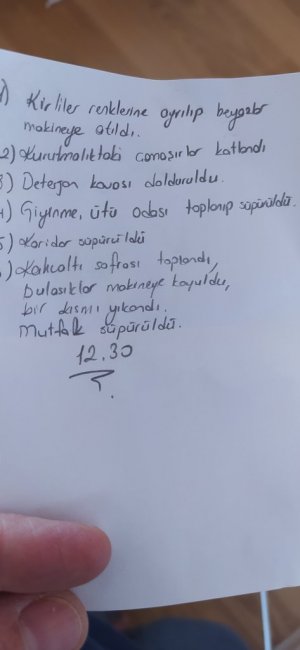 1) Kirliler renklerine ayrılıp beyazlar
makineye atıldı.
2) Kurutmalıktaki çamaşırlar katlandı
3) Deterjan kovası dolduruldu.
4) Giyinme, ütü odası toplanıp süpürüldü
5) Koridor süpürüldü
) Kahvaltı sofrası toplandı,
bulaşıklar makineye koyuldu,
bir kısmı yıkandı.
Mutfak süpürüldü.
12.30